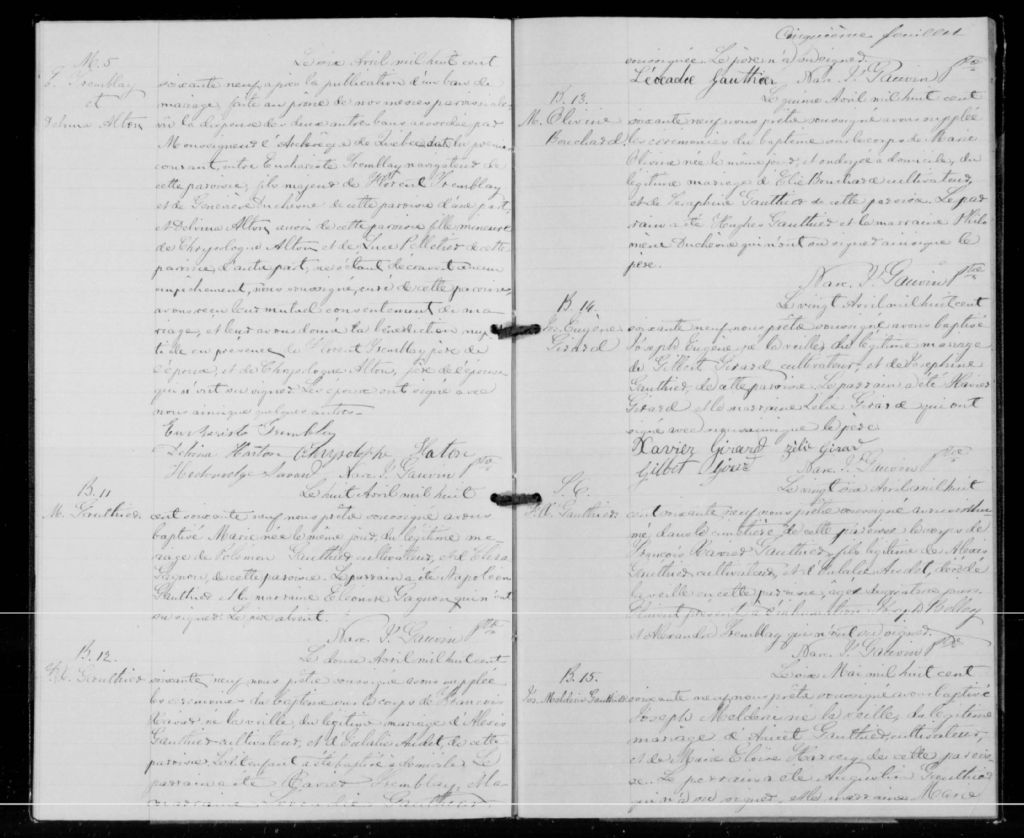 M. 5
T. Tremblay
et
Delvina Alton
Le six Avril mil huit cent
soixante neuf, après la publication d'un ban de
mariage faite au prône de nos messes paroissiales
vu la dispense de deux autres bans accordée par
Monseigneur l'Archevêque de Québec en date du
courant, entre Euchariste Tremblay navigateur de
cette paroisse, fils majeur de Florent Tremblay
et de Geneviève Duchesne de cette paroisse d'une part;
et Delvina Alton aussi de cette paroisse fille mineure
de Chrysologue Alton et de Luce Pelletier de cette
paroisse d'autre part, ne s'étant découvert aucun
empêchement, nous soussigné, curé de cette paroisse,
avons reçu leur mutuel consentement de ma-
riage, et leur avons donné la bénédiction nup-
tiale en présence de Florent Tremblay père de
l'époux, et de Chrysologue Alton, père de l'épouse
qui n'ont su signer. Les époux ont signé avec
nous ainsi que quelques autres.
Euchariste Tremblay
Delvina Harton Chrysologue Haton
Savard Narc. J. Gauvin Ptre
B. 11
M. Gauthier
Le huit Avril mil huit
cent soixante neuf nous prêtre soussigné avons
baptisé Marie née le même jour du légitime ma-
riage de Polémon Gauthier cultivateur, et d'
Gagnon, de cette paroisse. Le parrain a été Napoléon
Gauthier et la marraine Eléonore Gagnon qui n'ont
su signer. Le père absent.
Narc. J. Gauvin Ptre
B. 12.
F. X. Gauthier
Le douze Avril mil huit cent
soixante neuf nous prêtre soussigné avons suppléé
les cérémonies du baptême sur le corps de François
Xavier né la veille, du légitime mariage d'Alexis
Gauthier cultivateur, et d'Eulalie Audet, de cette
paroisse. Le dit enfant a été baptisé à domicile. Le
parrain a été Xavier Tremblay, la
marraine Léocadie Gauthier
Cinquième feuillet
soussignée. Le père n'a su signer.
Léocadie Gauthier Narc. J. Gauvin Ptre
B. 13.
M. Olivine
Bouchard
Le quinze Avril mil huit cent
soixante neuf nous prêtre soussigné avons suppléé
les cérémonies du baptême sur le corps de Marie
Olivine née le même jour, et ondoyée à domicile, du
légitime mariage d'Elie Bouchard cultivateur,
et de Séraphine Gauthier de cette paroisse. Le par-
rain a été Hughes Gauthier et la marraine Philo-
mène Duchesne qui n'ont su signer ainsi que le
père.
Narc. J. Gauvin Ptre
B. 14.
Jos. Eugène
Girard
Le vingt Avril mil huit cent
soixante neuf nous prêtre soussigné avons baptisé
Joseph Eugène né la veille, du légitime mariage
de Gilbert Girard cultivateur, et de Joséphine
Gauthier, de cette paroisse. Le parrain a été Xavier
Girard et la marraine Zélie Girard qui ont
signé avec nous ainsi que le père
Xavier Girard Zélie Girar
Gilbert Girard Narc. J. Gauvin Ptre
S. 6.
F. X. Gauthier
Le vingt six Avril mil huit
cent soixante neuf nous prêtre soussigné avons inhu-
mé dans le cimetière de cette paroisse le corps de
François Xavier Gauthier, fils légitime de Alexis
Gauthier cultivateur, et d'Eulalie Audet, décédé
la veille en cette paroisse, âgé de quatorze jours.
Etaient présents à l'inhumation Joseph Bolley
et Alexandre Tremblay qui n'ont su signer.
Narc. J. Gauvin Ptre
B. 15.
Jos. Meldérie Gauthier
Le six Mai mil huit cent
soixante neuf nous prêtre soussigné avons baptisé
Joseph Meldérie né la veille, du légitime
mariage d' Gauthier cultivateur,
et de Marie Eloïse Harvey de cette parois-
se. Le parrain a été Augustin Gauthier
qui n'a su signer, et la marraine Marie